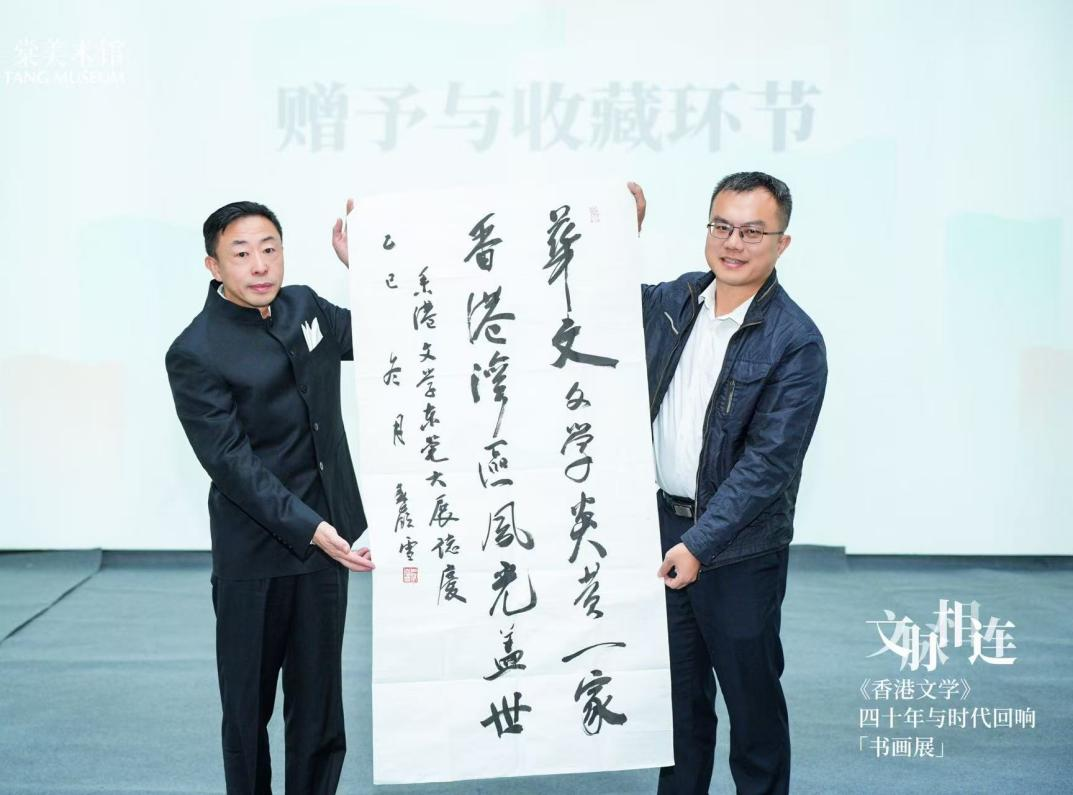 棠美术馆
TANG MUSEUM
赠予与收藏环节
華文文学炎黄一家
香港湾區風光盖世
香港文学东莞大展誌慶
乙巳冬月
文脉相连
《香港文学》
四十年与时代回响
「书画展」